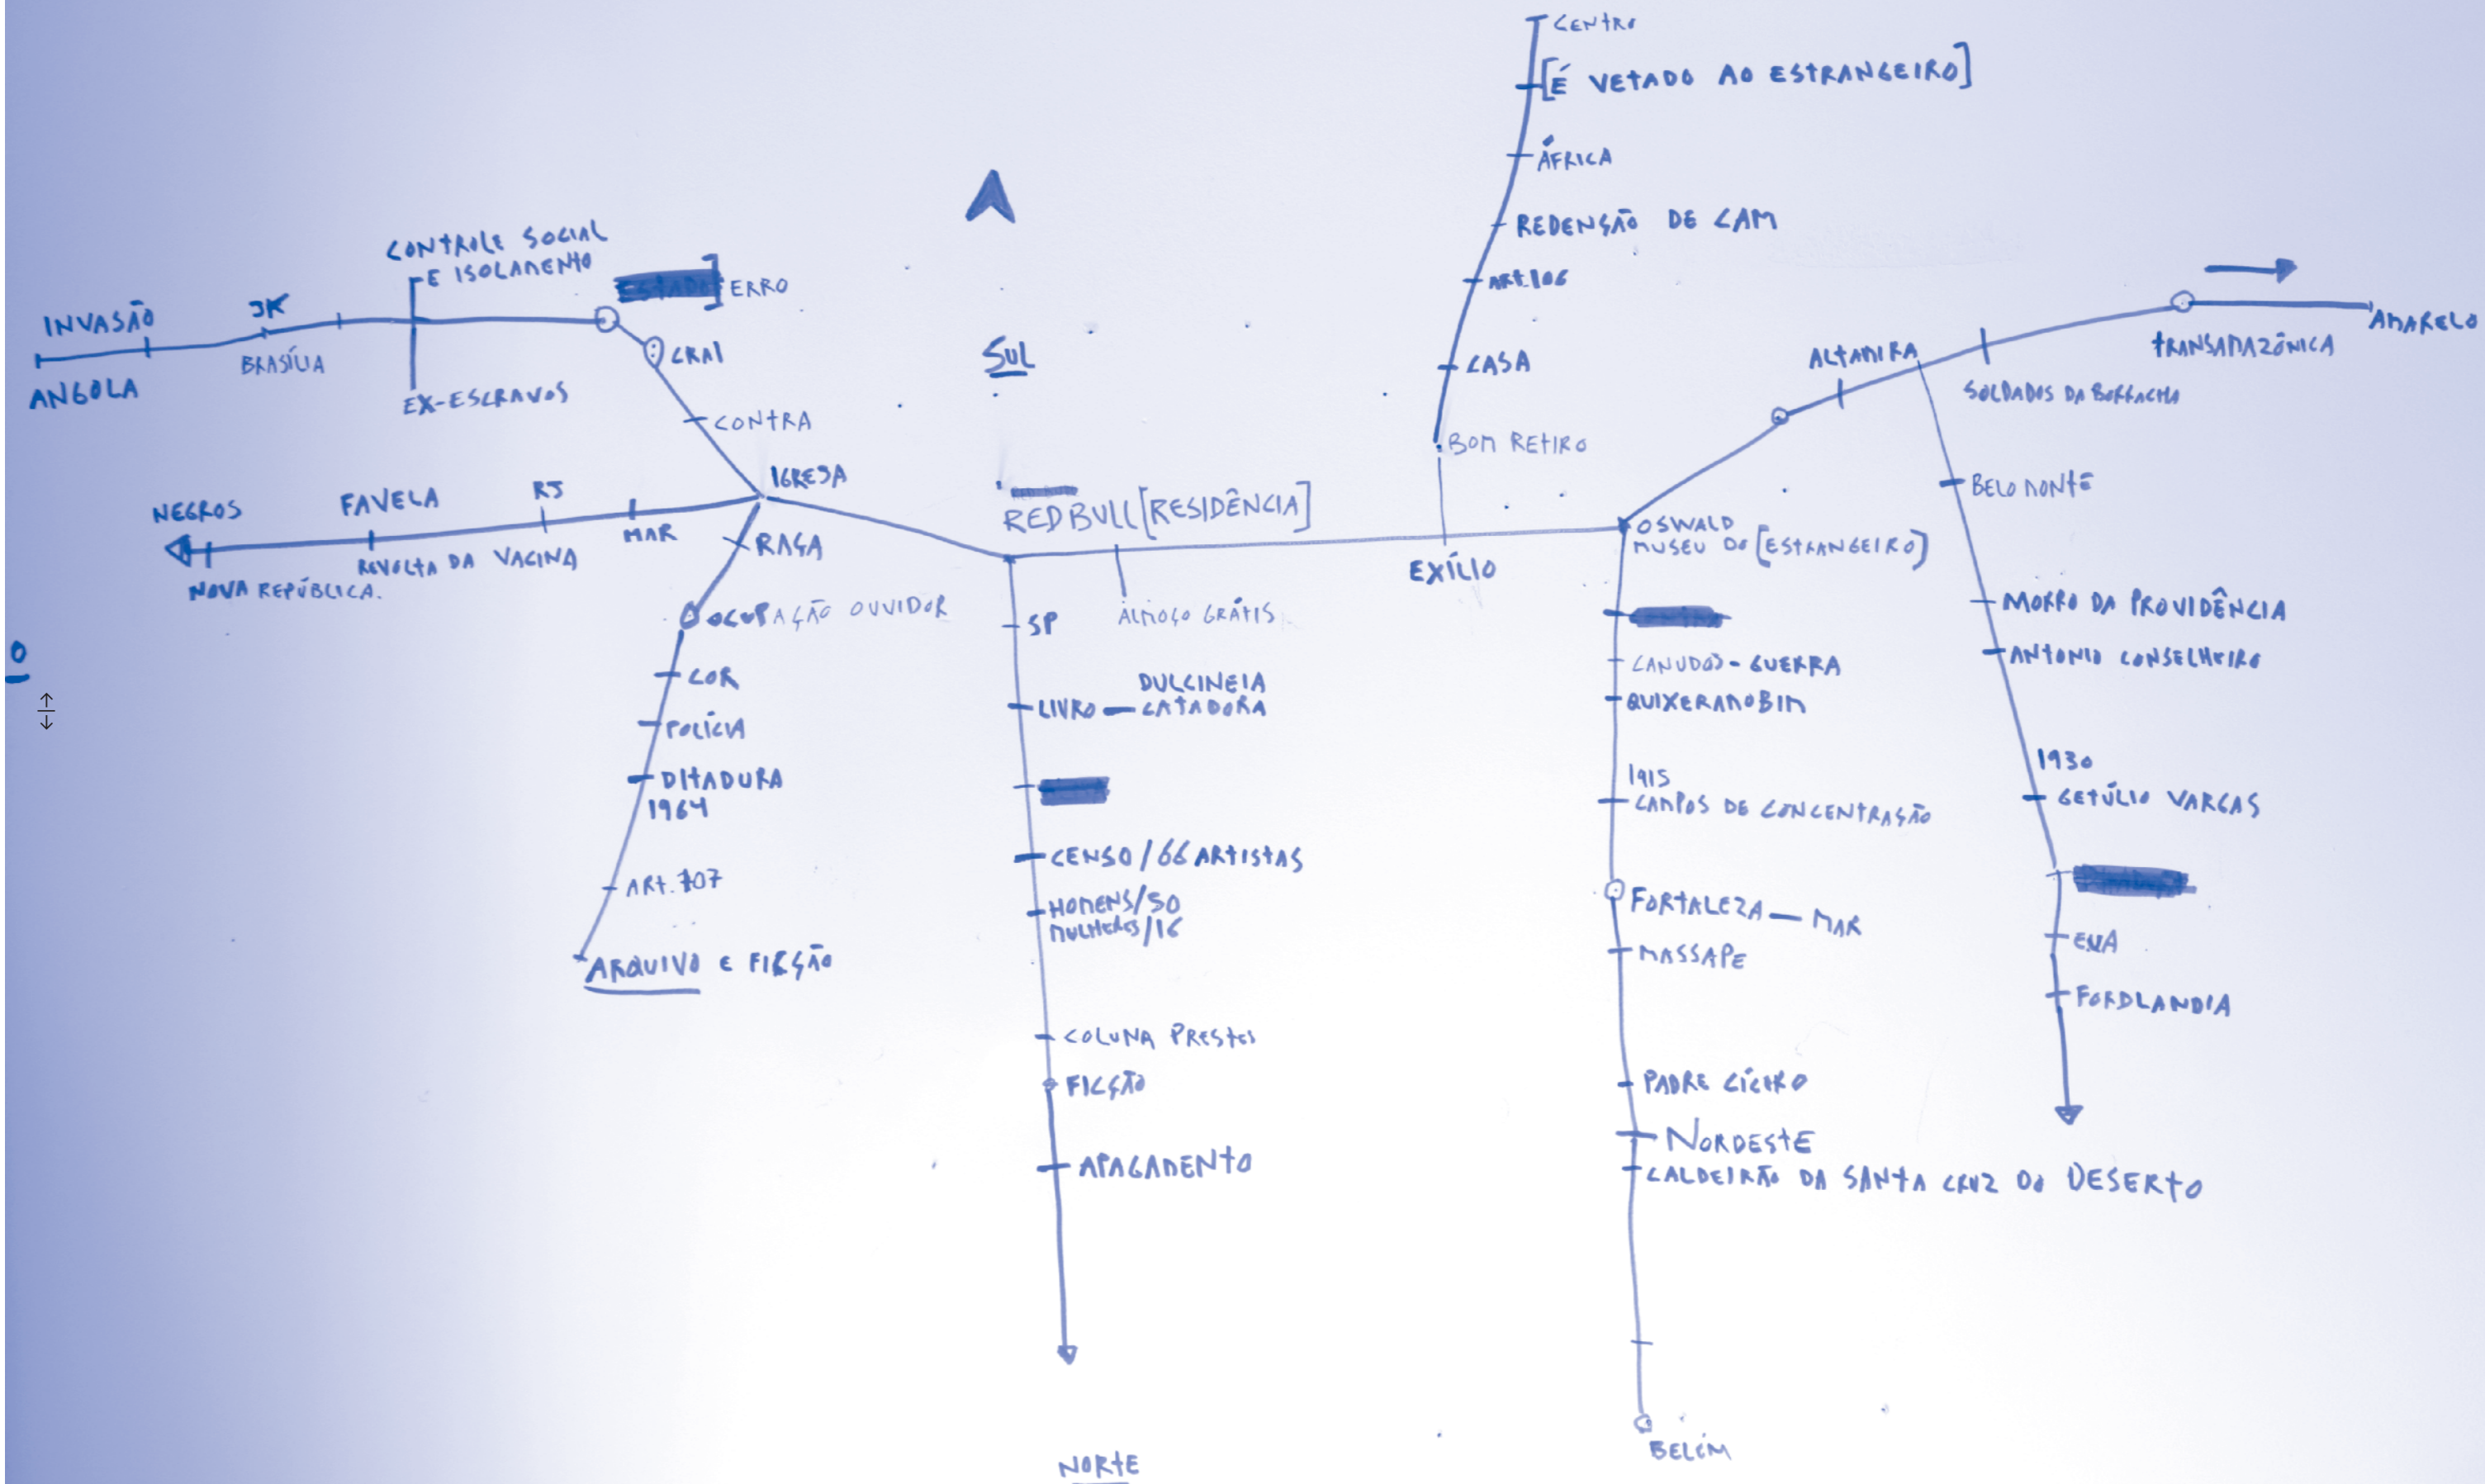 CENTRO
[É VETADO AO ESTRANGEIRO]
ÁFRICA
REDENSÃO DE CAM
ART.106
CASA
BOM RETIRO
EXÍLIO
CONTROLE SOCIAL
E ISOLAMENTO
ESTADO] ERRO
INVASÃO
JK
BRASÍLIA
ANGOLA
EX-ESCRAVOS
CRAI
CONTRA
IGREJA
SUL
NEGROS
FAVELA
RJ
MAR
REVOLTA DA VACINA
NOVA REPÚBLICA.
RAÇA
OCUPAÇÃO OUVIDOR
COR
POLÍCIA
DITADURA
1964
ART. 107
ARQUIVO E FICÇÃO
O
RED BULL [RESIDÊNCIA]
ALMOÇO GRÁTIS
SP
LIVRO — DULCINEIA
CATADORA
CENSO / 66 ARTISTAS
HOMENS/50
MULHERES/16
COLUNA PRESTES
FICÇÃO
APAGAMENTO
NORTE
OSWALD
MUSEU DO [ESTRANGEIRO]
CANUDOS - GUERRA
QUIXERAMOBIM
1915
CAMPOS DE CONCENTRAÇÃO
FORTALEZA — MAR
MASSAPE
PADRE CÍCERO
NORDESTE
CALDEIRÃO DA SANTA CRUZ DO DESERTO
BELÉM
ALTAMIRA
SOLDADOS DA BORRACHA
TRANSAMAZÔNICA
AMARELO
BELO MONTE
MORRO DA PROVIDÊNCIA
ANTONIO CONSELHEIRO
1930
GETÚLIO VARGAS
EUA
FORDLANDIA